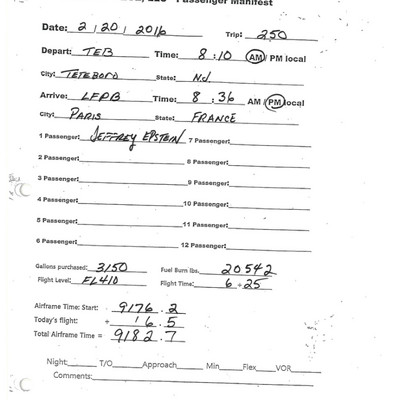 Passenger Manifest
Date: 2 / 20 / 2016 Trip: 250
Depart: TEB Time: 8 : 10 AM / PM local
City: TETEBORO State: NJ
Arrive: LFPB Time: 8 : 36 AM / PM local
City: PARIS State: FRANCE
1 Passenger: JEFFREY EPSTEIN 7 Passenger:
2 Passenger: 8 Passenger:
3 Passenger: 9 Passenger:
4 Passenger: 10 Passenger:
5 Passenger: 11 Passenger:
6 Passenger: 12 Passenger:
Gallons purchased: 3150 Fuel Burn lbs. 20542
Flight Level: FL410 Flight Time: 6 + 25
Airframe Time: Start: 9176.2
Today's flight: + 6.5
Total Airframe Time = 9182.7
Night: T/O Approach Min Flex VOR
Comments: